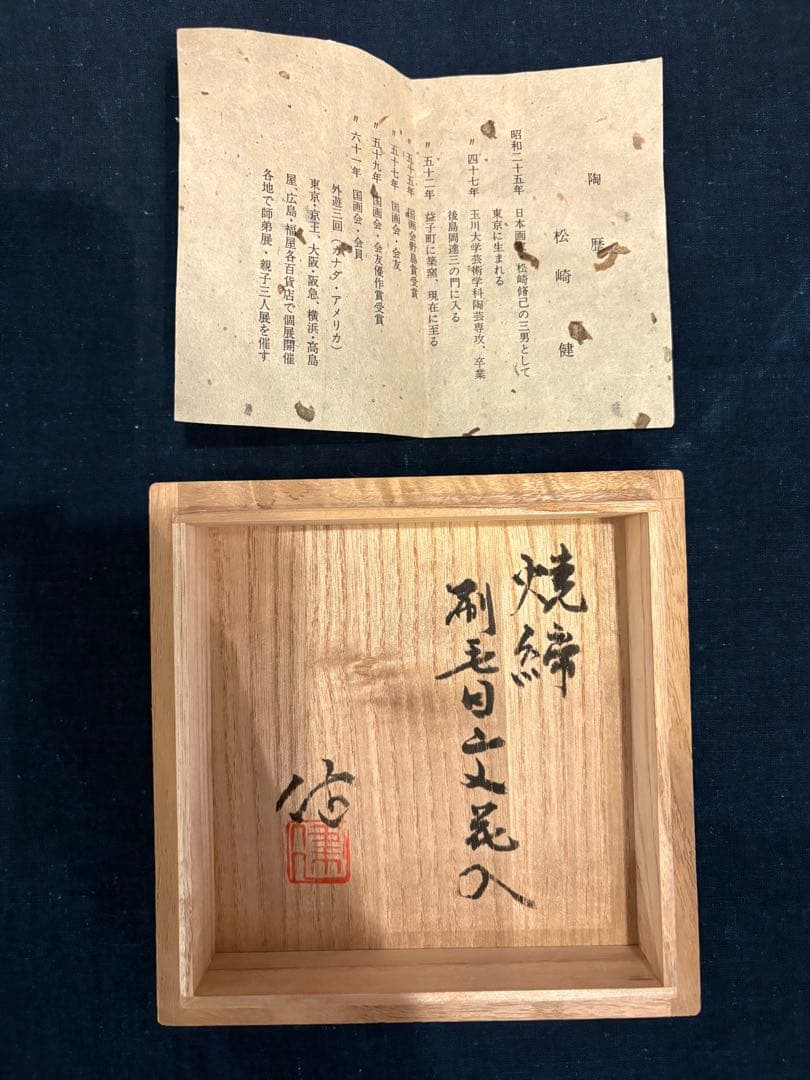 陶歴
松崎 健
昭和二十五年 日本画家 松崎脩己の三男として
東京に生まれる
〃 四十七年 玉川大学芸術学科陶芸専攻、卒業
後島岡達三の門に入る
〃 五十二年 益子町に築窯、現在に至る
〃 五十五年 国画会野島賞受賞
〃 五十七年 国画会・会友
〃 五十九年 国画会・会友優作賞受賞
〃 六十一年 国画会・会員
外遊三回(カナダ・アメリカ)
東京・京王、大阪・阪急、横浜・高島
屋、広島・福屋各百貨店で個展開催
各地で師弟展・親子三人展を催す
焼締
刷毛目山文花入